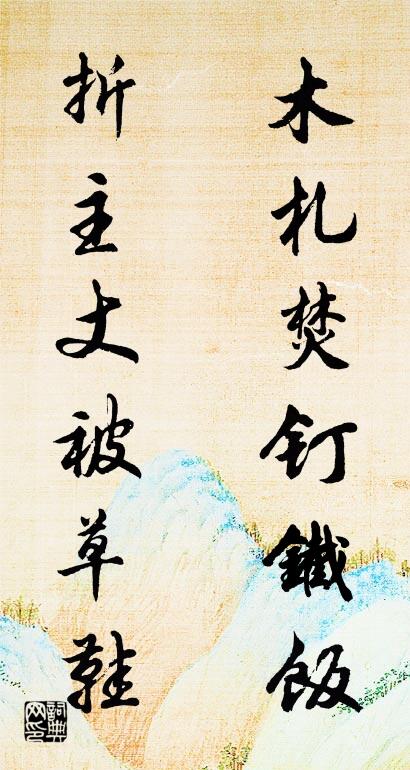 木札焚釘鐵飯
折主丈被草鞋
詞典
网印